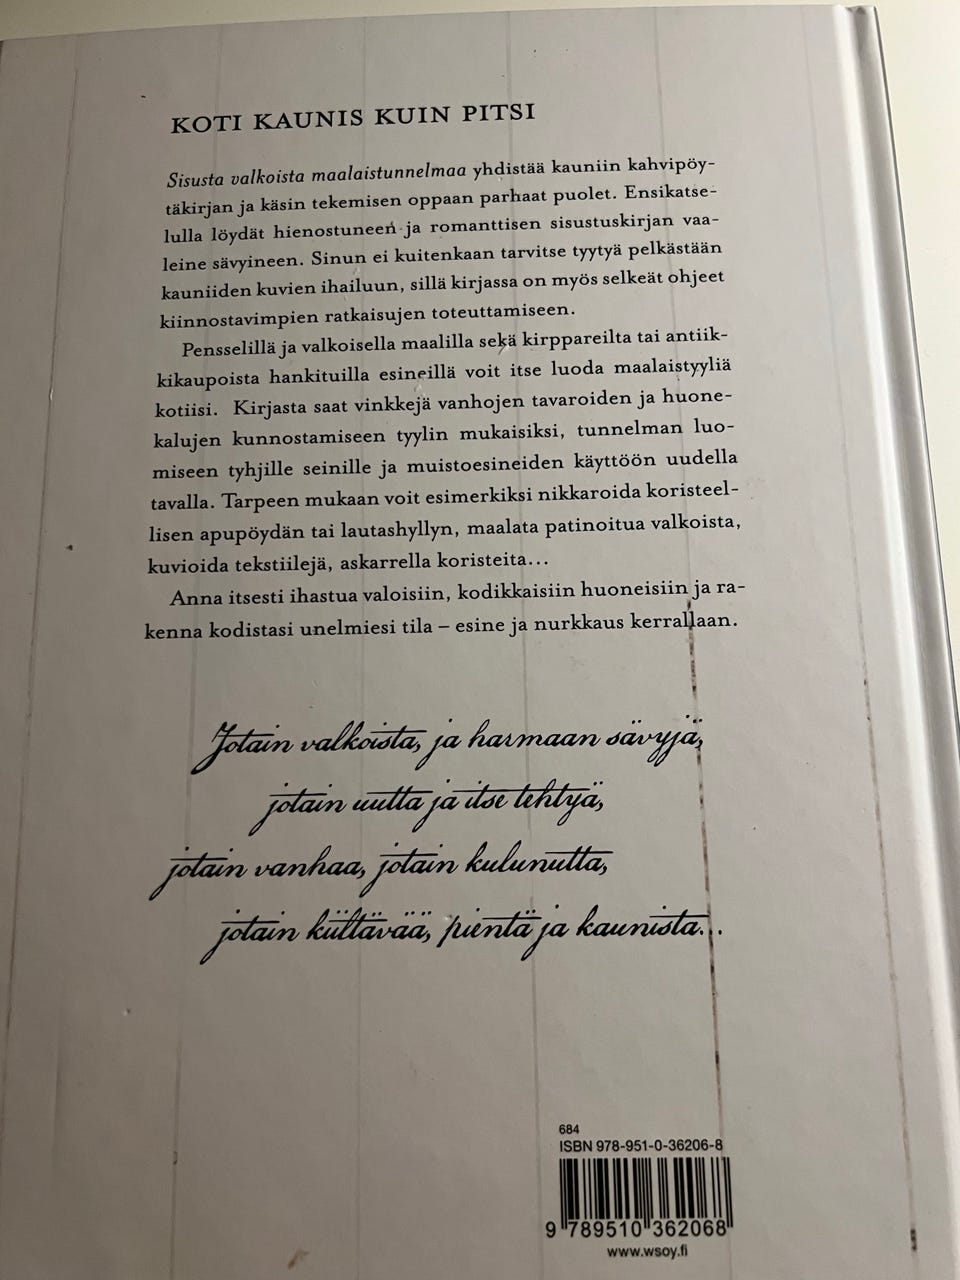 KOTI KAUNIS KUIN PITSI
Sisusta valkoista maalaistunnelmaa yhdistää kauniin kahvipöy-
täkirjan ja käsin tekemisen oppaan parhaat puolet. Ensikatse-
lulla löydät hienostuneen ja romanttisen sisustuskirjan vaa-
leine sävyineen. Sinun ei kuitenkaan tarvitse tyytyä pelkästään
kauniiden kuvien ihailuun, sillä kirjassa on myös selkeät ohjeet
kiinnostavimpien ratkaisujen toteuttamiseen.
Pensselillä ja valkoisella maalilla sekä kirppareilta tai antiik-
kikaupoista hankituilla esineillä voit itse luoda maalaistyyliä
kotiisi. Kirjasta saat vinkkejä vanhojen tavaroiden ja huone-
kalujen kunnostamiseen tyylin mukaisiksi, tunnelman luo-
miseen tyhjille seinille ja muistoesineiden käyttöön uudella
tavalla. Tarpeen mukaan voit esimerkiksi nikkaroida koristeel-
lisen apupöydän tai lautashyllyn, maalata patinoitua valkoista,
kuvioida tekstiilejä, askarrella koristeita...
Anna itsesti ihastua valoisiin, kodikkaisiin huoneisiin ja ra-
kenna kodistasi unelmiesi tila – esine ja nurkkaus kerrallaan.
Jotain valkoista, ja harmaan sävyjä,
jotain uutta ja itse tehtyä,
jotain vanhaa, jotain kulunutta,
jotain kiiltävää, pientä ja kaunista...
684
ISBN 978-951-0-36206-8
9 789510 362068
www.wsoy.fi